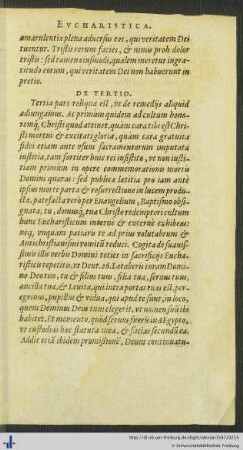 EVCHARISTICA.
amarulentia plena aduersus eos, qui veritatem Dei
tuentur. Tristis rerum facies, & nimis proh dolor
tristis: sed tamen eiusmodi, qualem meretur ingra-
titudo eorum, qui veritatem Dei non habuerunt in
pretio.
DE TERTIO.
Tertia pars reliqua est, vt de remedijs aliquid
adiungamus. Ac primùm quidem ad cultum hono-
remq́; Christi quod attinet, quàm cara tibi est Chri-
sti mors & excitati gloria, quàm cara gratuita
fidei etiam ante vsum sacramentorum imputata
iustitia, tam fortiter huic rei insistite, vt non iusti-
tiam primùm in opere commemorationis mortis
Domini quæras: sed publica lætitia pro iam antè
ipsius morte parta & resurrectione in lucem produ-
cta, patefacta verò per Euangelium, Baptismo obsi-
gnata, tu, domusq́; tua Christo redemptori cultum
hunc Eucharisticum internè & externè exhibeas:
neq; vnquam patiaris te ad prius volutabrum &
Antichristianismi vomitū reduci. Cogita de suauis-
simis illis verbis Domini toties in sacrificijs Euchari-
sticis repetitis, vt Deut. 26. Lætaberis coram Domi-
no Deo tuo, tu & filius tuus, filia tua, seruus tuus,
ancilla tua, & Leuita, qui intra portas tuas est, per-
egrinus, pupillus & vidua, qui apud te sunt, in loco,
quem Dominus Deus tuus elegerit, vt nomen suū ibi
habitet. Et memento, quòd seruus fueris in Aegypto,
vt custodias hæc statuta mea, & facias secundū ea.
Addit etiā ibidem promissionē, Deum continuatu-
http://dl.ub.uni-freiburg.de/diglit/wierzow1543/0055
© Universitätsbibliothek Freiburg